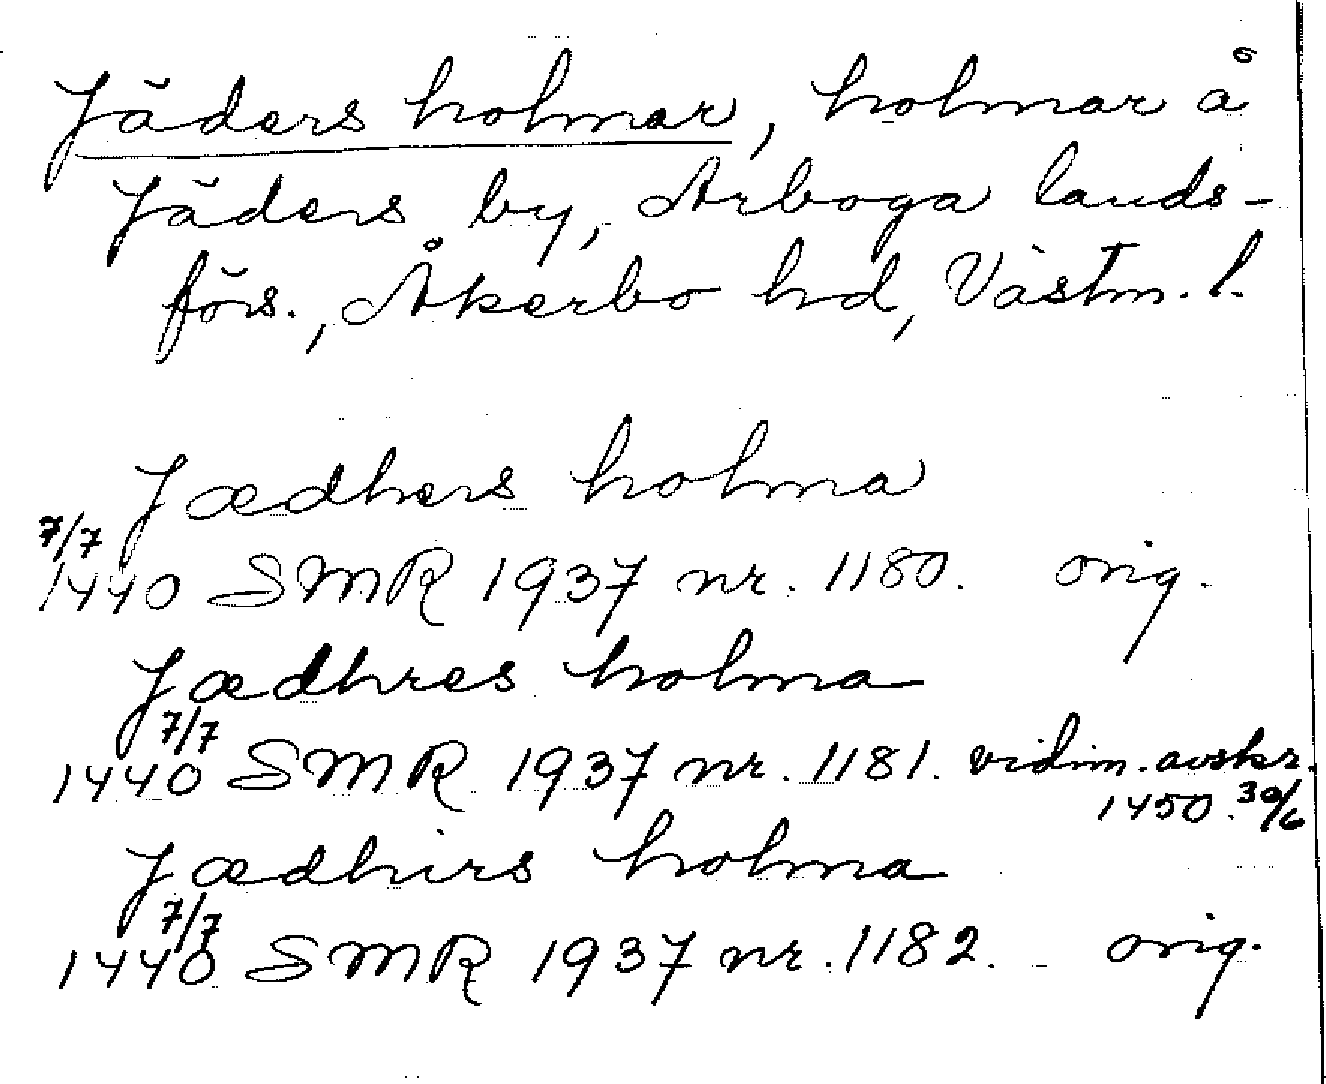 Jäders holmar, holmar å
Jäders by, Arboga lands-
förs., Åkerbo hd, Västm. l.
Jædhers holma
7/7
1440 SMR 1937 nr. 1180. orig.
Jædhres holma
7/7
1440 SMR 1937 nr. 1181. vidim. avskr.
1450 30/6
Jædhirs holma
7/7
1440 SMR 1937 nr. 1182. orig.